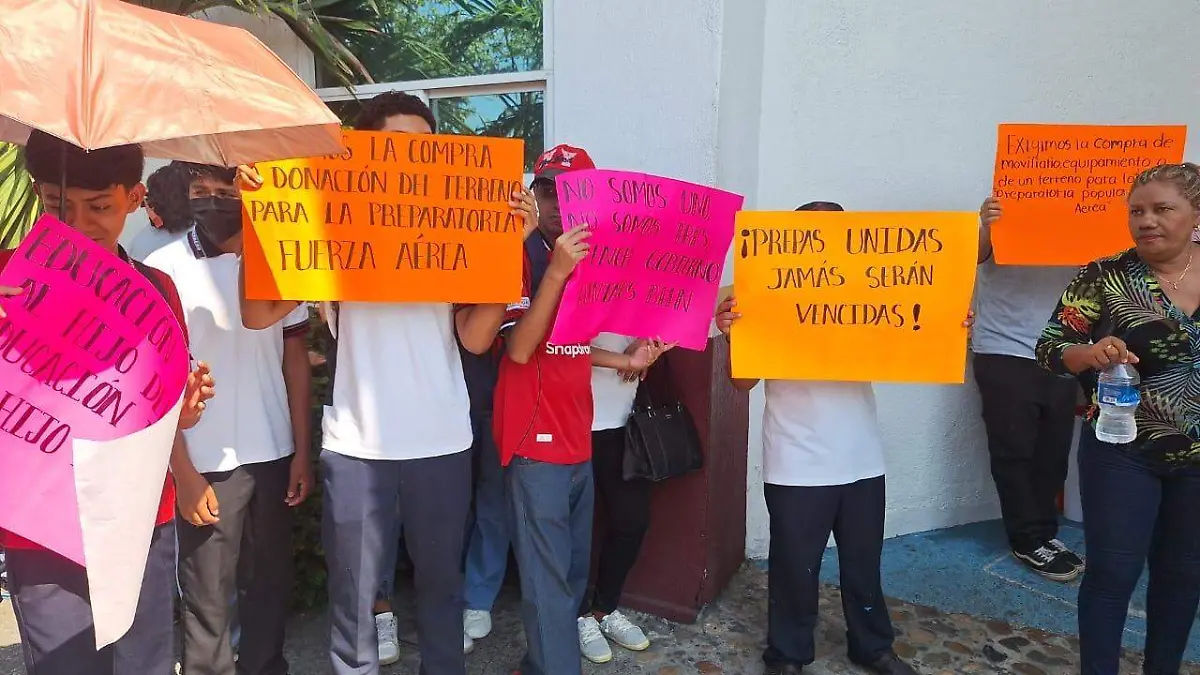 EDUCACIÓN
AL HIJO DE
EDUCACIÓN
HIJO
LA COMPRA
DONACIÓN DEL TERRENO
PARA LA PREPARATORIA
FUERZA AÉREA
NO SOMOS UNO,
NO SOMOS
Snapdra
¡PREPAS UNIDAS
JAMÁS SERÁN
VENCIDAS!
EXIGIMOS LA COMPRA DE
MOVILIATIO, EQUIPAMIENTO
DE UN TERRENO PARA LA
PREPARATORIA POPULAR
AEREA"